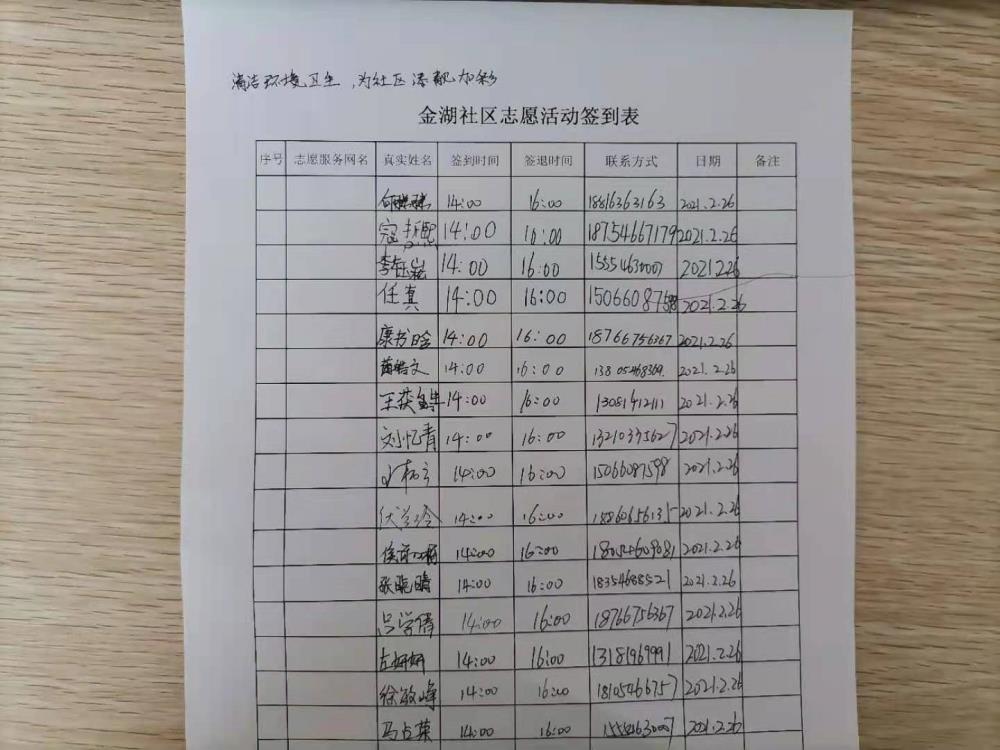 清洁环境卫生，为社区添靓加彩
金湖社区志愿活动签到表
序号 志愿服务网名 真实姓名 签到时间 签退时间 联系方式 日期 备注
14:00 16:00 18816363163 2021.2.26
寇 14:00 16:00 18754667179 2021.2.26
李钰 14:00 16:00 15554630007 2021226
任真 14:00 16:00 2021.2.26
康书晗 14:00 16:00 18766756367 2021.2.26
14:00 16:00 13805468369. 2021.2.26
王获 14:00 16:00 13081412111 2021.2.26
刘忆青 14:00 16:00 13210335627 2021.2.26
14:00 16:00 15066087598 2021.2.26
伏 14:00 16:00 18860656135 2021.2.26
侯 14:00 16:00 18054609081 2021.2.26
张晓晴 14:00 16:00 18354688521 2021.2.26
吕学倩 14:00 16:00 18766756367 2021.2.26
左妍妍 14:00 16:00 13181969991 2021.2.26
徐敏峰 14:00 16:00 18105466757 2021.2.26
马占英 14:00 16:00 15554630007 2021.2.26